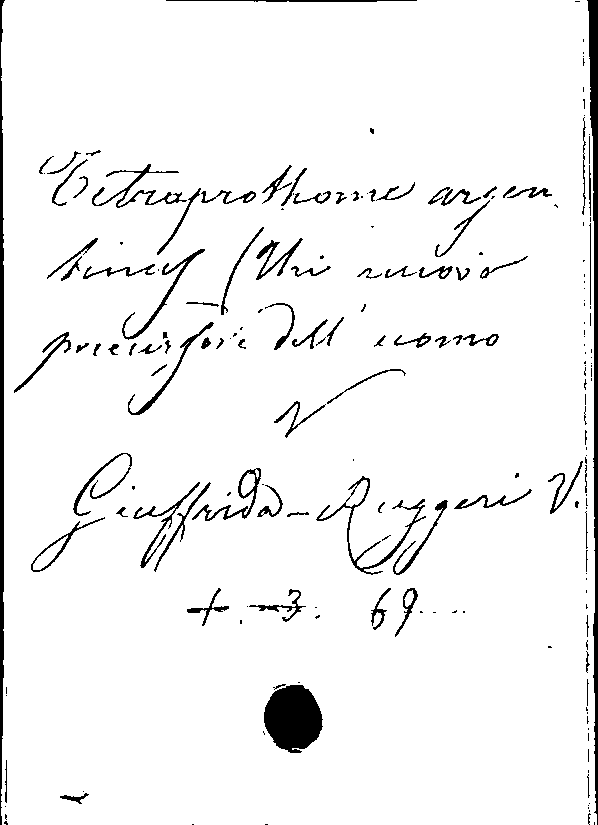 Tetraprothome argen
tinus (Un nuovo
precursore dell' uomo
Giuffrida-Ruggeri V.
+. 3. 69